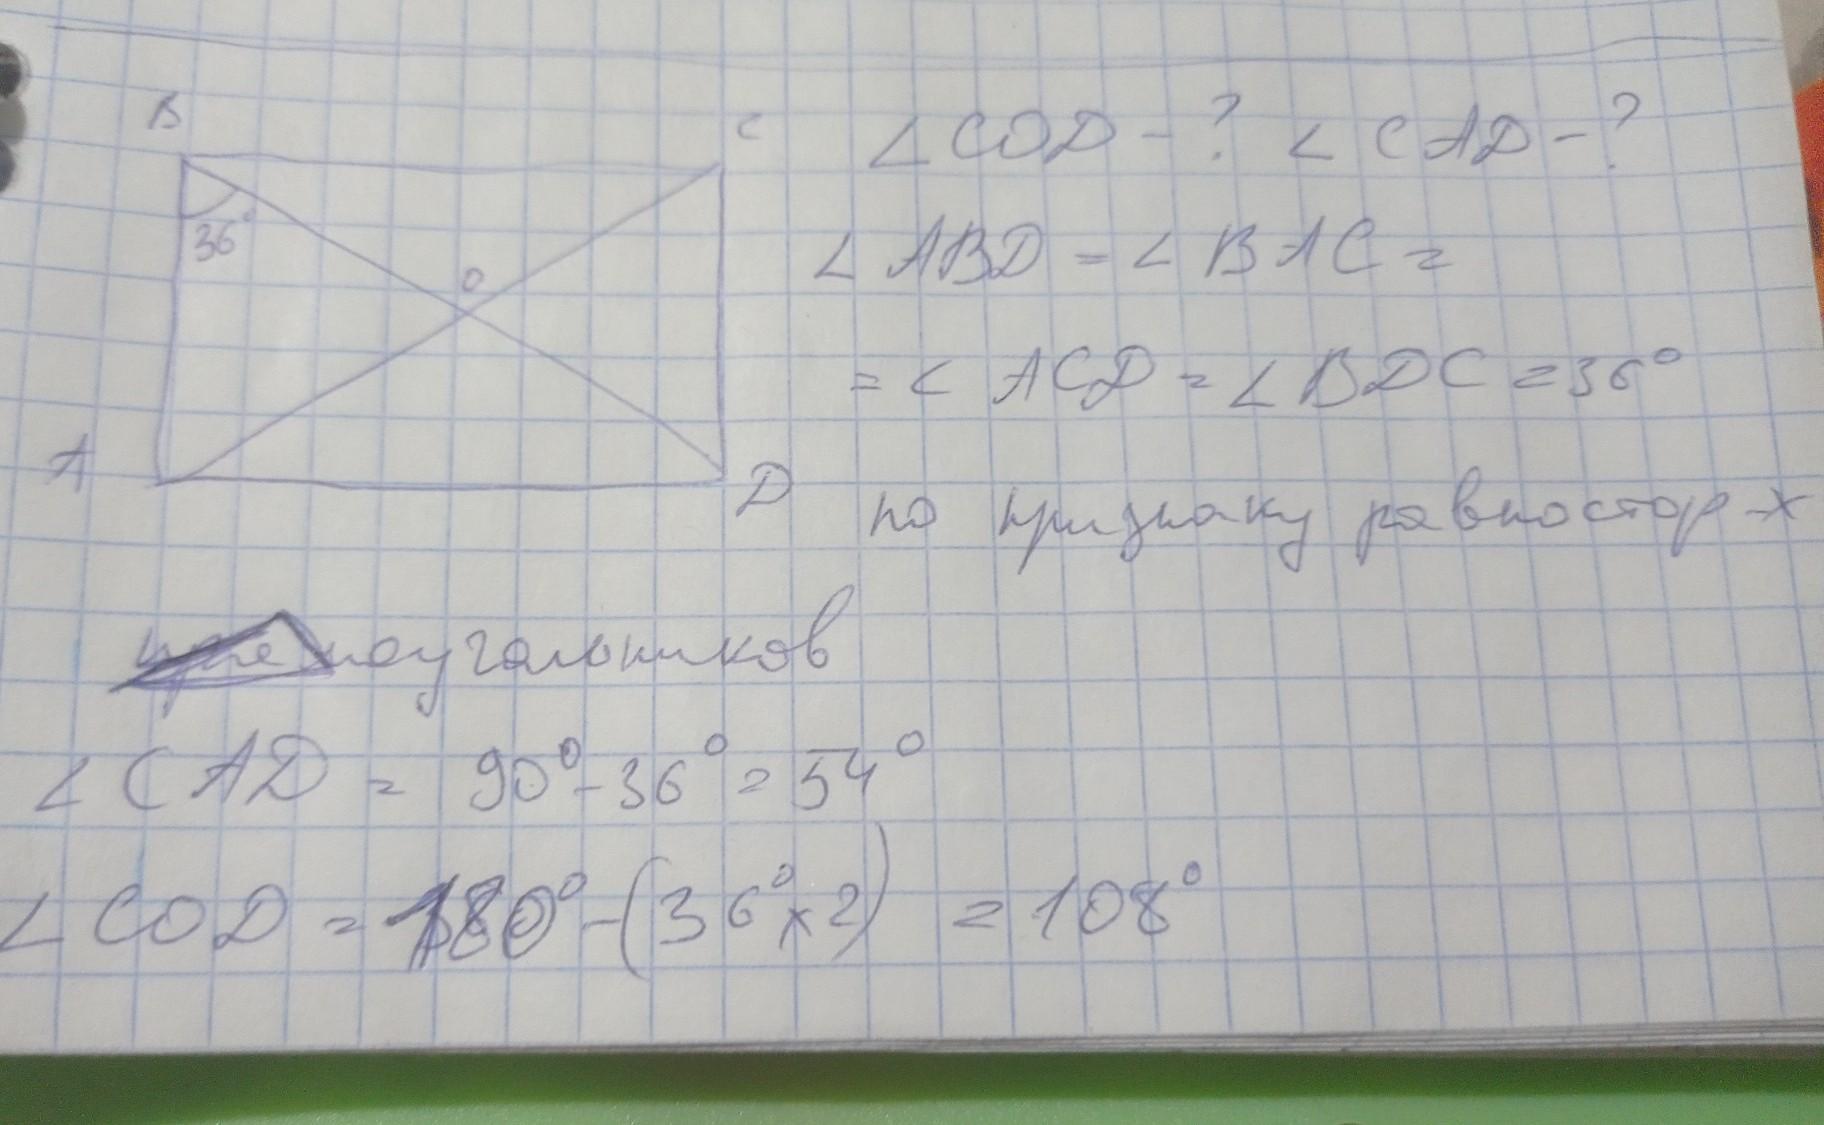 B
C
36°
O
A
D
∠COD - ? ∠CAD - ?
∠ABD = ∠BAC =
= ∠ACD = ∠BDC = 36°
по признаку равностор-х
неугольников
∠CAD = 90° - 36° = 54°
∠COD = 180° - (36° x 2) = 108°